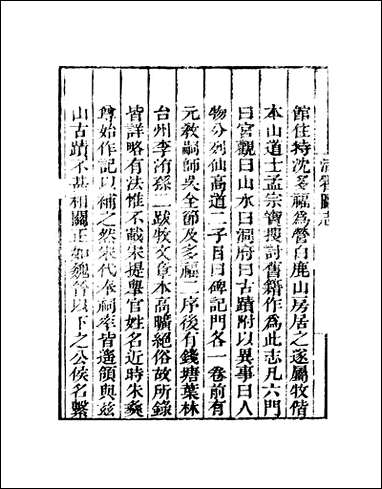 洞霄圖志
館住持沈多福爲營白鹿山房居之遂屬牧偕
本山道士孟宗寶搜討舊籍作爲此志凡六門
曰宮觀曰山水曰洞府曰古蹟附以異事曰人
物分列仙高道二子目曰碑記門各一卷前有
元教嗣師吳全節及多福二序後有錢塘葉林
台州李洧孫二跋牧文章本高曠絕俗故所錄
皆詳略有法惟不載宋提舉官姓名近時朱彝
尊始作記以補之然宋代奉祠率皆遥領與兹
山古蹟不甚相關正如魏晉以下之公侯名繫